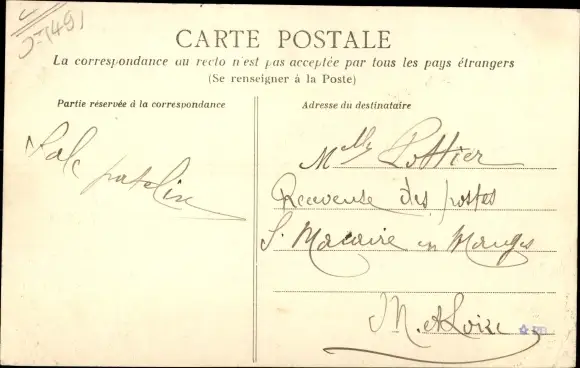 CARTE POSTALE
La correspondance au recto n'est pas acceptée par tous les pays étrangers
(Se renseigner à la Poste)
Partie réservée à la correspondance
Adresse du destinataire
Melle Pottier
Receveuse des postes
St Macaire en Mauges
M. et Loire